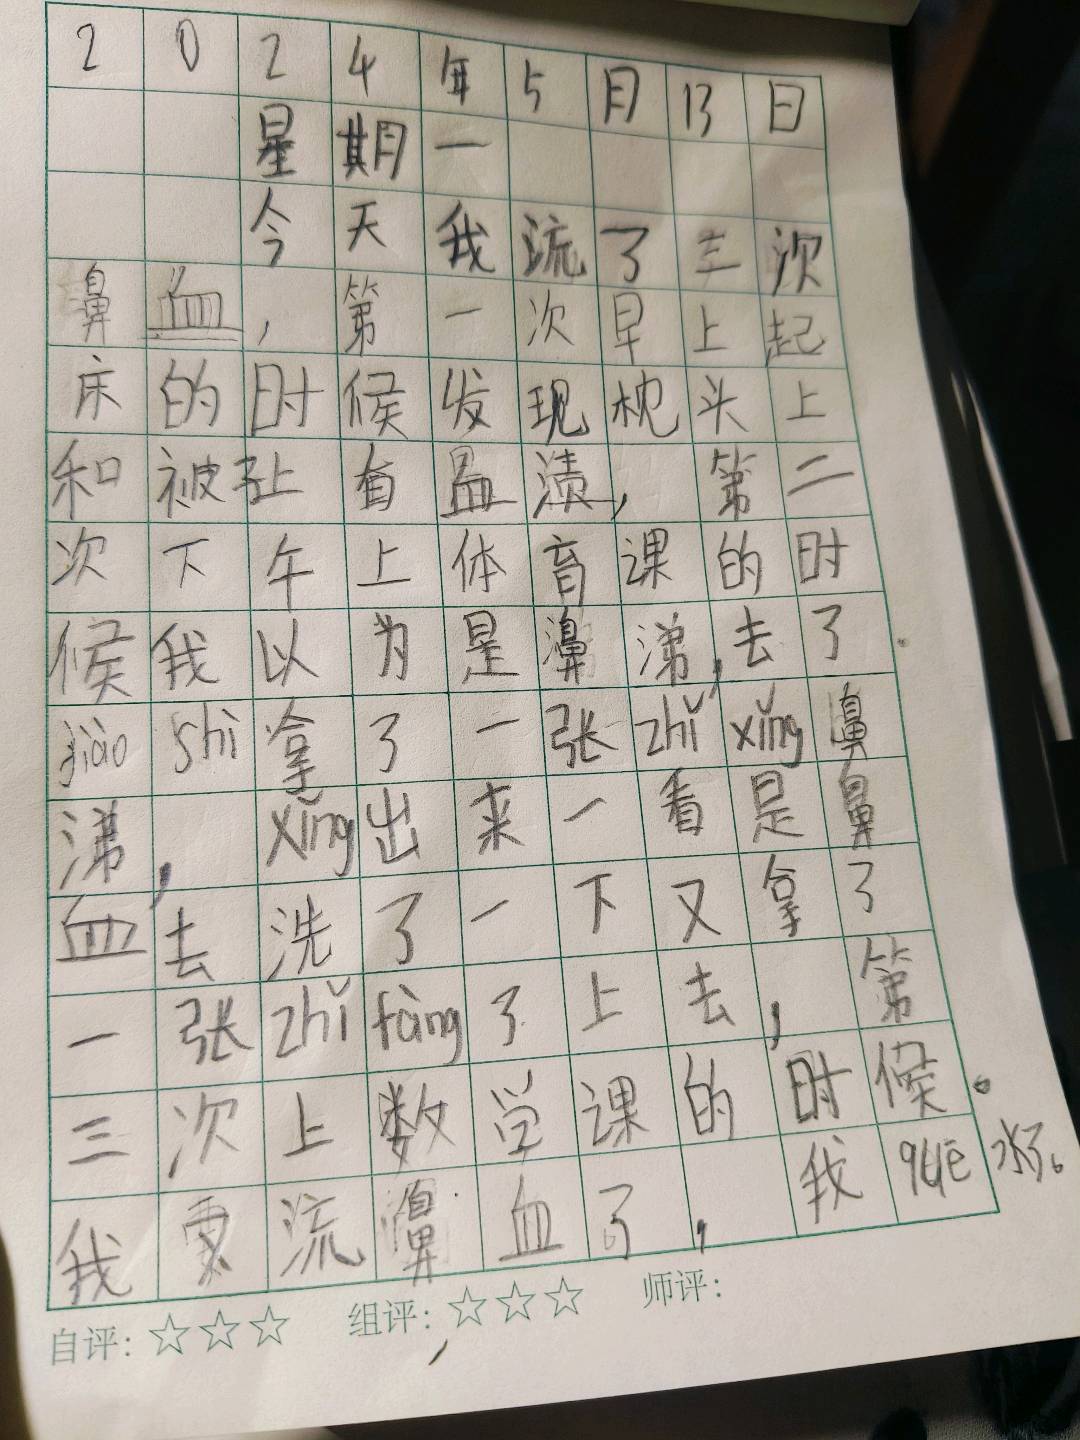 2024年5月13日
星期一
今天我流了三次
鼻血,第一次早上起
床的时候发现枕头上
和被子上有血渍,第二
次下午上体育课的时
候我以为是鼻涕,去了
jiào shì拿了一张zhǐ xǐng鼻
涕,xǐng出来一看是鼻
血,去洗了一下又拿了
一张zhǐ fàng了上去,第
三次上数学课的时候。
我又流鼻血了,我quē水了。
自评:☆☆☆ 组评:☆☆☆ 师评: